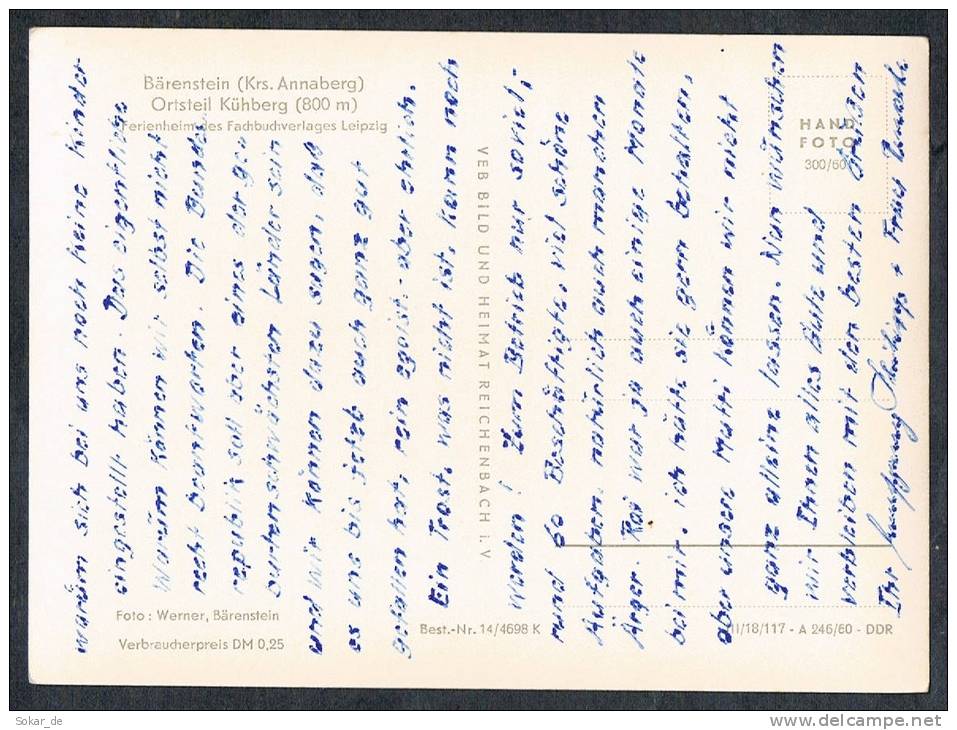 Bärenstein (Krs. Annaberg)
Ortsteil Kühberg (800 m)
Ferienheim des Fachbuchverlages Leipzig
HAND
FOTO
300/60
VEB BILD UND HEIMAT REICHENBACH i. V.
warum sich bei uns noch keine Kinder
eingestellt haben. Das eigentliche
Warum können wir selbst nicht
recht beantworten. Die Bundes-
republik soll aber eines der ge-
burtenschwächsten Länder sein
und wir können dazu sagen, daß
es uns bis jetzt auch ganz gut
gefallen hat, rein egoist. aber ehrlich.
Ein Trost, was nicht ist, kann noch
werden! Zum Betrieb nur soviel;
rund 60 Beschäftigte, viel schöne
Aufgaben, natürlich auch manchen
Ärger. war ja auch einige Monate
bei mir, ich hätte sie gern behalten,
aber unsere Mutti können wir nicht
ganz alleine lassen. Nun wünschen
wir Ihnen alles Gute und
verbleiben mit den besten Grüßen
Ihr + Frau
Foto: Werner, Bärenstein
Verbraucherpreis DM 0,25
Best.-Nr. 14/4698 K
II/18/117 - A 246/60 - DDR
Sokar_de
www.delcampe.net